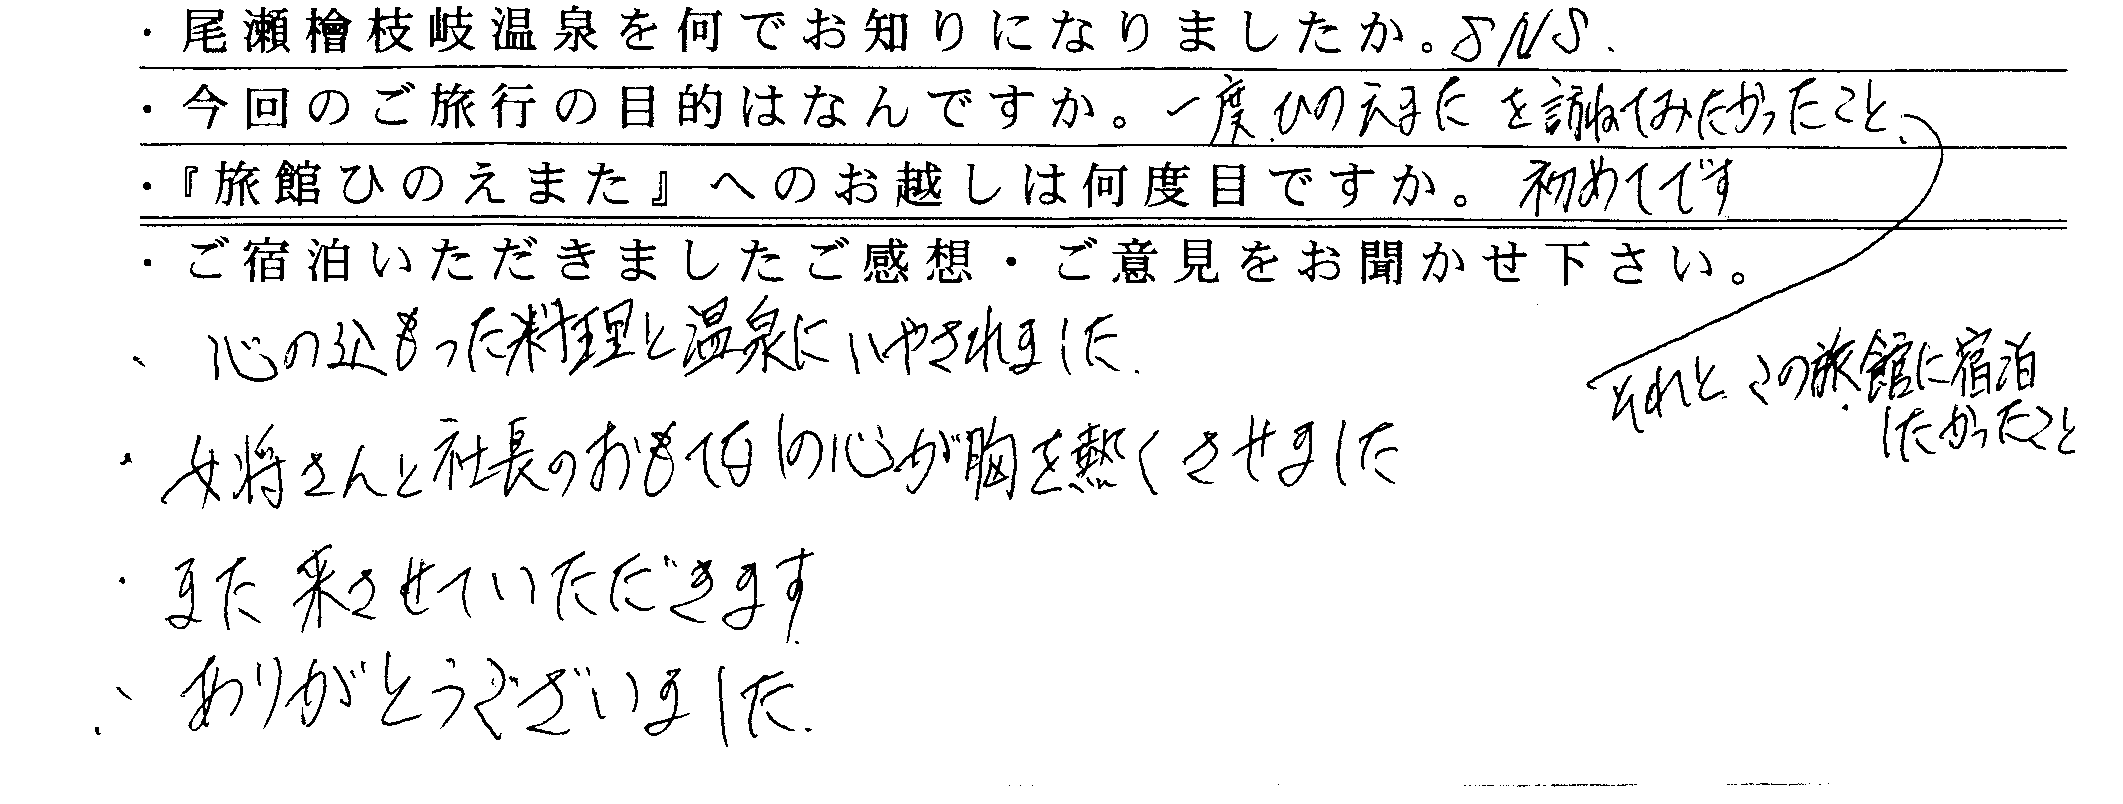 ・尾瀬檜枝岐温泉を何でお知りになりましたか。SNS.
・今回のご旅行の目的はなんですか。一度ひのえまたを訪ねてみたかったこと、
・『旅館ひのえまた』へのお越しは何度目ですか。初めてです
・ご宿泊いただきましたご感想・ご意見をお聞かせ下さい。
それとこの旅館に宿泊
したかったこと
、心の込もった料理と温泉にいやされました.
・女将さんと社長のおもてなしの心が胸を熱くさせました
・また来させていただきます.
、ありがとうございました.